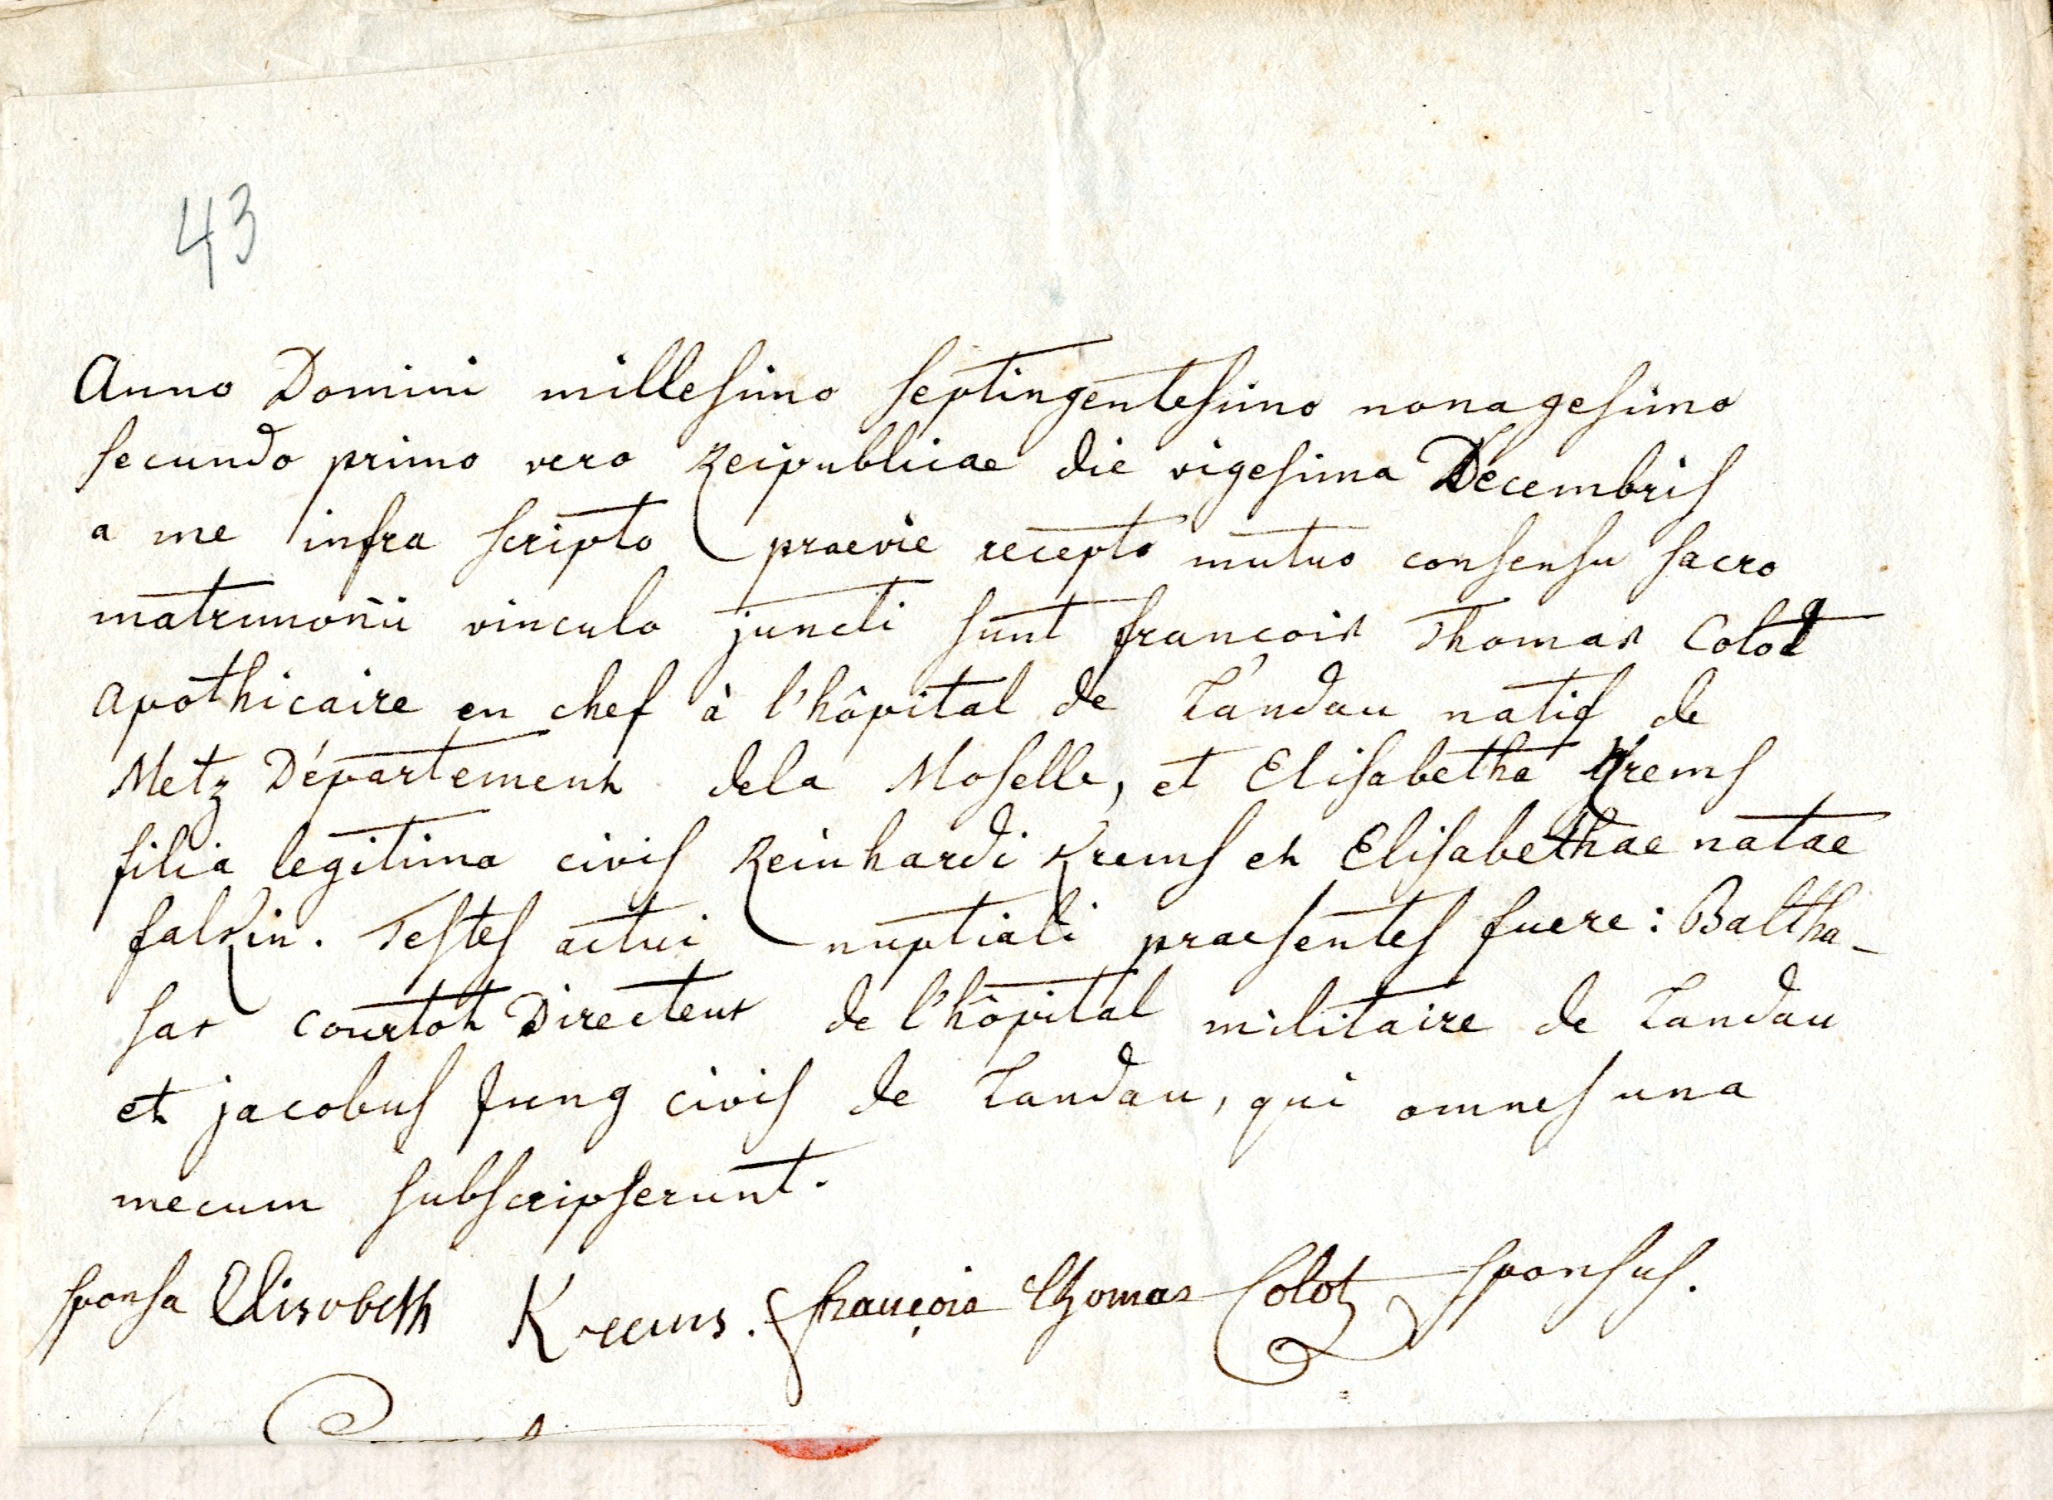 43
Anno Domini millesimo septingentesimo nonagesimo
secundo primo vero Reipublicae die vigesima Decembris
a me infra scripto praevie recepto mutuo consensu sacro
matrimonii vinculo juncti sunt françois Thomas Colot
apothicaire en chef à l'hôpital de Landau natif de
Metz Département dela Moselle, et Elisabetha Krems
filia legitima civis Reinhardi Krems et Elisabethae natae
falkin. Testes actui nuptiali praesentes fuere: Baltha-
sar Courtot Directeur de l'hôpital militaire de Landau
et jacobus Jung civis de Landau, qui omnes una
mecum subscripserunt.
sponsa Elisabeth Krems. françois thomas Colot sponsus.